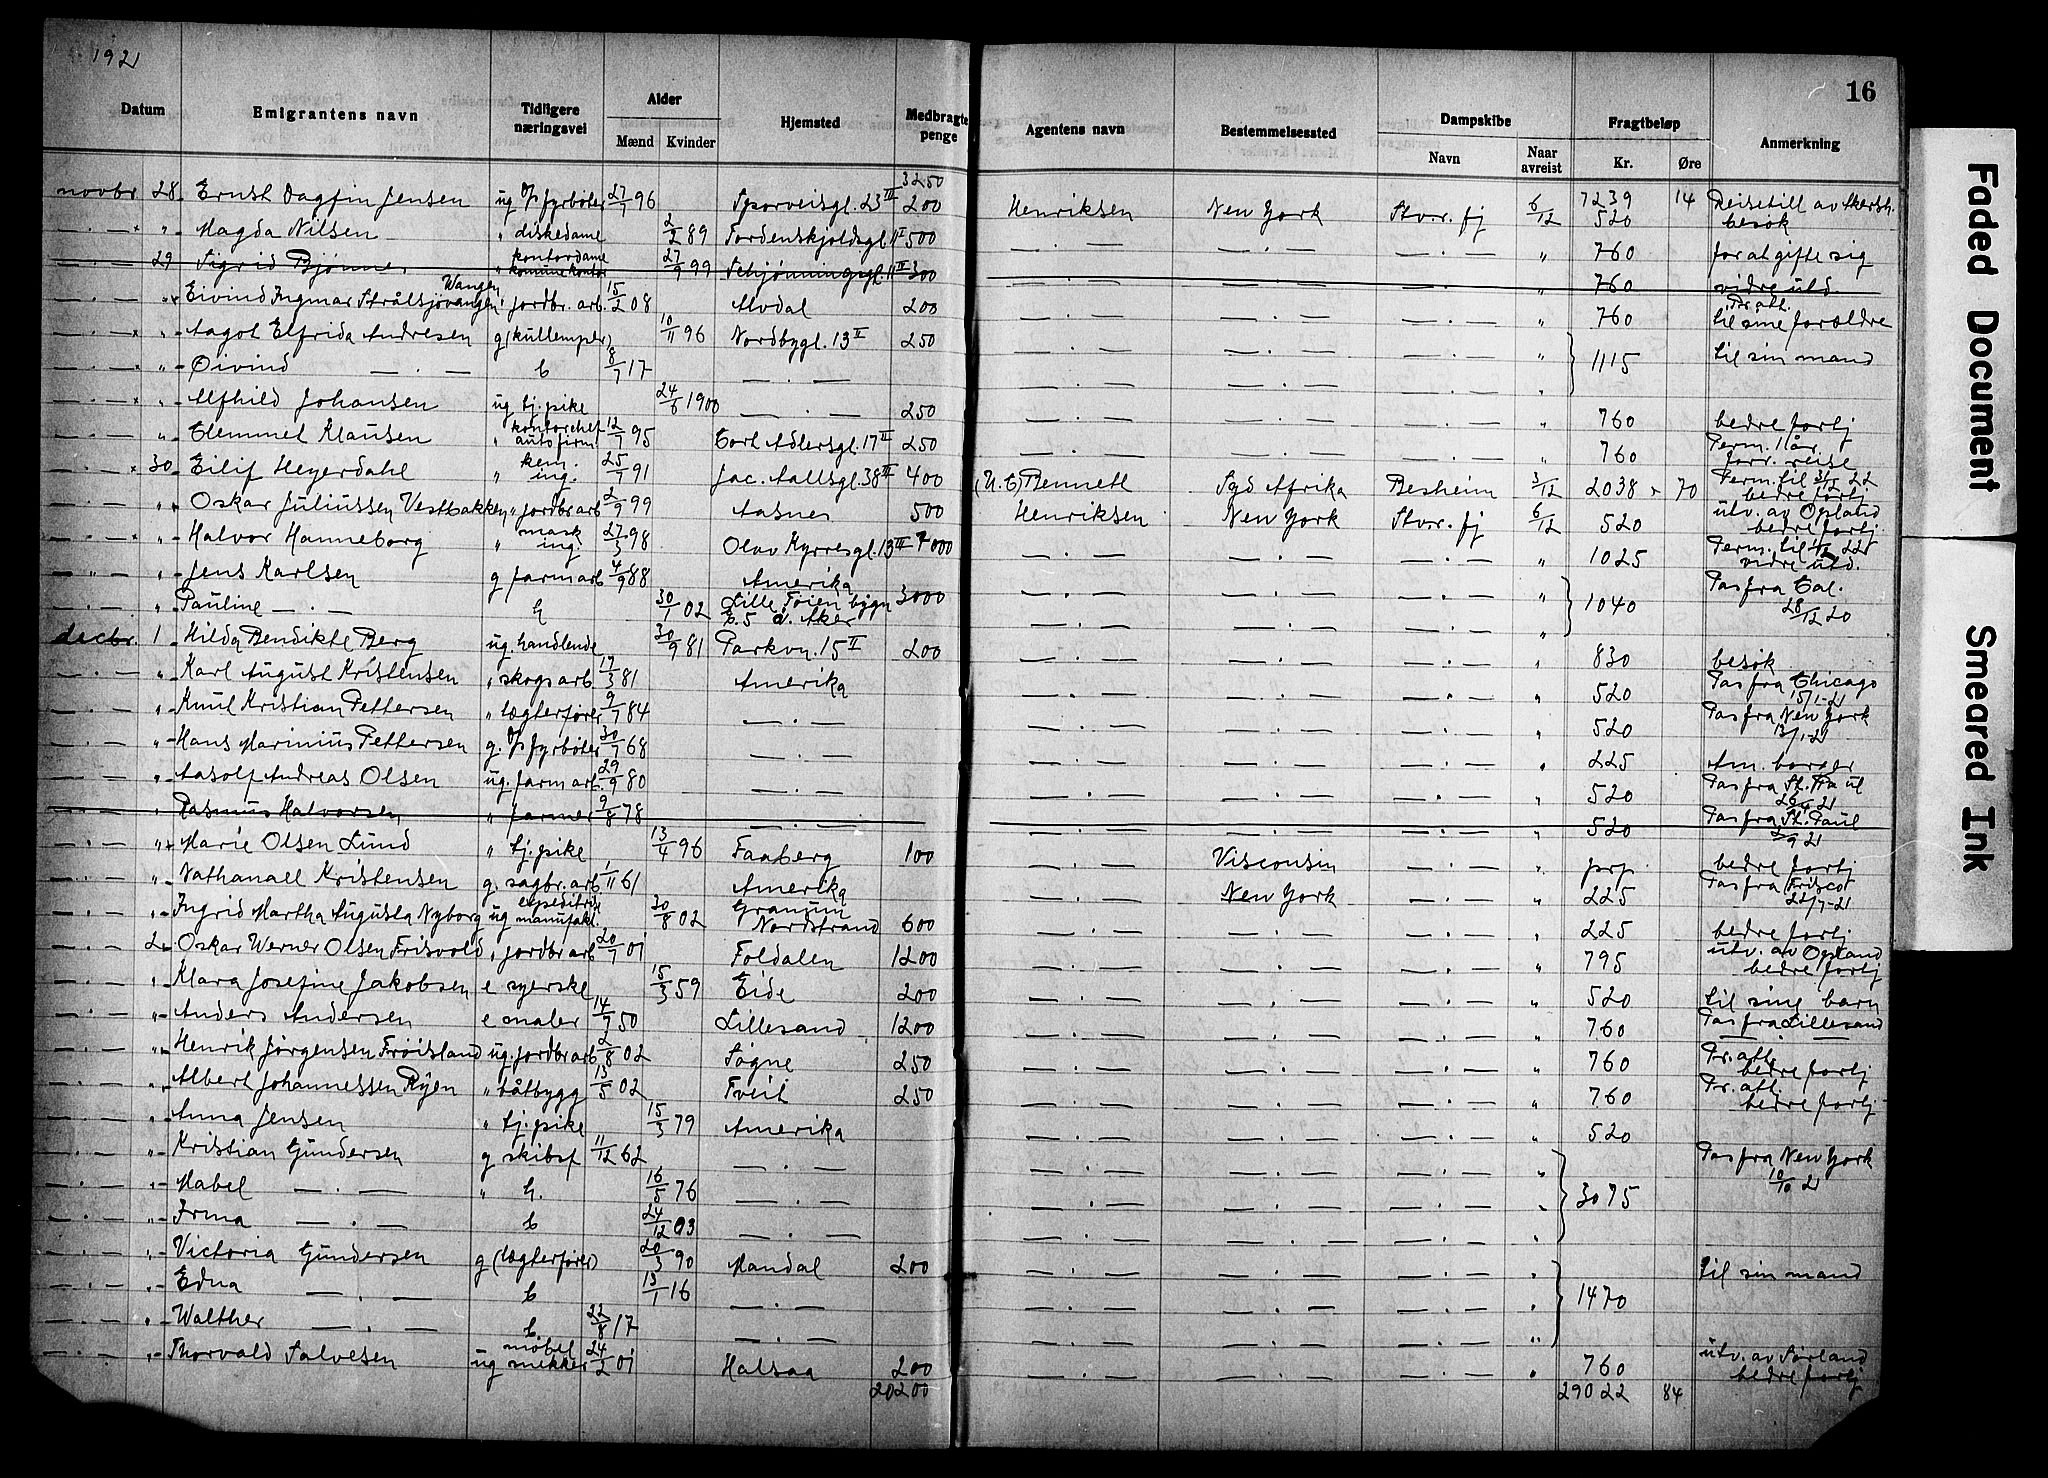 1921
16
Datum | Emigrantens navn | Tidligere næringsvei | Alder Mænd Kvinder | Hjemsted | Medbragte penge | Agentens navn | Bestemmelsessted | Dampskibe Navn Naar avreist | Fragtbeløp Kr. Øre | Anmerkning
3250 | 7239 14
novbr 28 Ernst Dagfin Jensen ug. fyrbøter 27/7 96 Sporveisgt. 23 III 200 Henriksen New York Stvr. fj 6/12 520 Reisetill av Akersh. besøk
— " Magda Nilsen " diskedame 2/2 89 Tordenskjoldsgt. 11 I 500 — . — — . — — . — " 760 for at gifte sig
— 29 Sigrid Bjønnes " kontordame kommunekontor 27/9 99 Schjønningsgt. 11 II 300 " 760 vidre utd.
— " Eivind Ingmar Strålsjøvangen Wangen " jordbr. arb 15/2 08 Alvdal 200 — . — — . — — . — " 760 Fr. att. til sine forældre
— " Aagot Elfrida Andresen g (kullemper) 10/11 96 Nordbygt. 13 II 250 — . — — . — — . — " } 1115 til sin mand
— " Øivind — . — b 8/7 17 — . — — . — — . — — . — "
— " Alfhild Johansen ug tj. pike 24/6 1900 — . — 250 — . — — . — — . — " 760 bedre fortj
— " Clemmet Klausen " kontorchef autofirm 12/7 95 Cort Adlersgt. 17 II 250 — . — — . — — . — " 760 Perm. 1 år forr. reise
— 30 Eilif Heyerdahl " kem. ing. 25/7 91 Jac. Aallsgt. 38 II 400 Bennett Syd Afrika Besheim 3/12 2038 70 Perm. til 3/12 22 bedre fortj
— " Oskar Juliussen Vestbakken " jordbr arb 2/9 99 Aasnes 500 Henriksen New York Stvr. fj 6/12 520 utv. av Opland bedre fortj
— " Halvor Hanneborg " mask ing. 27/3 98 Olav Kyrresgt. 13 III 7000 — . — — . — — . — " 1025 Perm. til 22 vidre utd.
— " Jens Karlsen g farmarb 4/9 88 Amerika — . — — . — — . — " } 1040 Pas fra Cal. 28/12 20
— " Pauline — . — h 30/1 02 Lille Tøien bygn 5 Aker 3000 — . — — . — — . — "
decbr. 1 Hilda Bendikte Berg ug. handlende 30/9 81 Parkvn. 15 II 200 — . — — . — — . — " 830 besøk
— " Karl August Kristensen " skogsarb 17/3 81 Amerika — . — — . — — . — " 520 Pas fra Chicago 15/1-21
— " Knut Kristian Pettersen " lægterfører 9/7 84 — . — — . — — . — — . — " 520 Pas fra New York 13/1-21
— " Hans Marinius Pettersen g. fyrbøter 30/7 68 — . — — . — — . — — . — " 225 Am. borger
— " Aasolf Andreas Olsen ug. farm arb 29/9 80 — . — — . — — . — — . — " 520 Pas fra St. Paul 26/4 21
— " Rasmus Halvorsen " farmer 9/8 78 — . — " 520 Pas fra St. Paul 2/9 21
— " Marie Olsen Lund " tj. pike 13/4 96 Faaberg 100 — . — Visconsin — . — " prp. bedre fortj
— " Nathanael Kristensen g. sagbr. arb 1/11 61 Amerika — . — New York — . — " 225 Pas fra Frisco 22/7-21
— " Ingrid Martha Augusta Nyborg ug expeditrice manufakt. 30/8 02 Granum Nordstrand 600 — . — — . — — . — " 225 bedre fortj
— 2 Oskar Werner Olsen Frisvold " jordbr arb 20/7 01 Foldalen 1200 — . — — . — — . — " 795 utv. av Opland bedre fortj
— " Klara Josefine Jakobsen e syerske 15/3 59 Eide 200 — . — — . — — . — " 520 til sine barn
— " Anders Andersen e maler 14/7 50 Lillesand 1200 — . — — . — — . — " 760 Pas fra Lillesand
— " Henrik Jørgensen Frøisland ug. jordbr arb 2/8 02 Søgne 250 — . — — . — — . — " 760 Fr. att. bedre fortj
— " Albert Johannessen Ryen " båtbygg 13/5 02 Tveit 250 — . — — . — — . — " 760 Fr. att. bedre fortj
— " Anna Jensen " tj. pike 15/3 79 Amerika — . — — . — — . — " 520
— " Kristian Gundersen g skibsf 11/12 62 — . — — . — — . — — . — " } 3075 Pas fra New York 10/10 21
— " Mabel — . — " h. 16/5 76 — . — — . — — . — — . — "
— " Irma — . — b 24/12 03 — . — — . — — . — — . — "
— " Victoria Gundersen g (lægterfører) 20/3 90 Mandal 200 — . — — . — — . — " } 1470 til sin mand
— " Edna — . — b 13/1 16 — . — — . — — . — — . — "
— " Walther — . — b. 22/8 17 — . — — . — — . — — . — "
— " Thorvald Salvesen ug møbel snekker 24/2 01 Halsaa 200 — . — — . — — . — " 760 utv. av Sørland bedre fortj
20200 | 29022 84
Faded Document
Smeared Ink